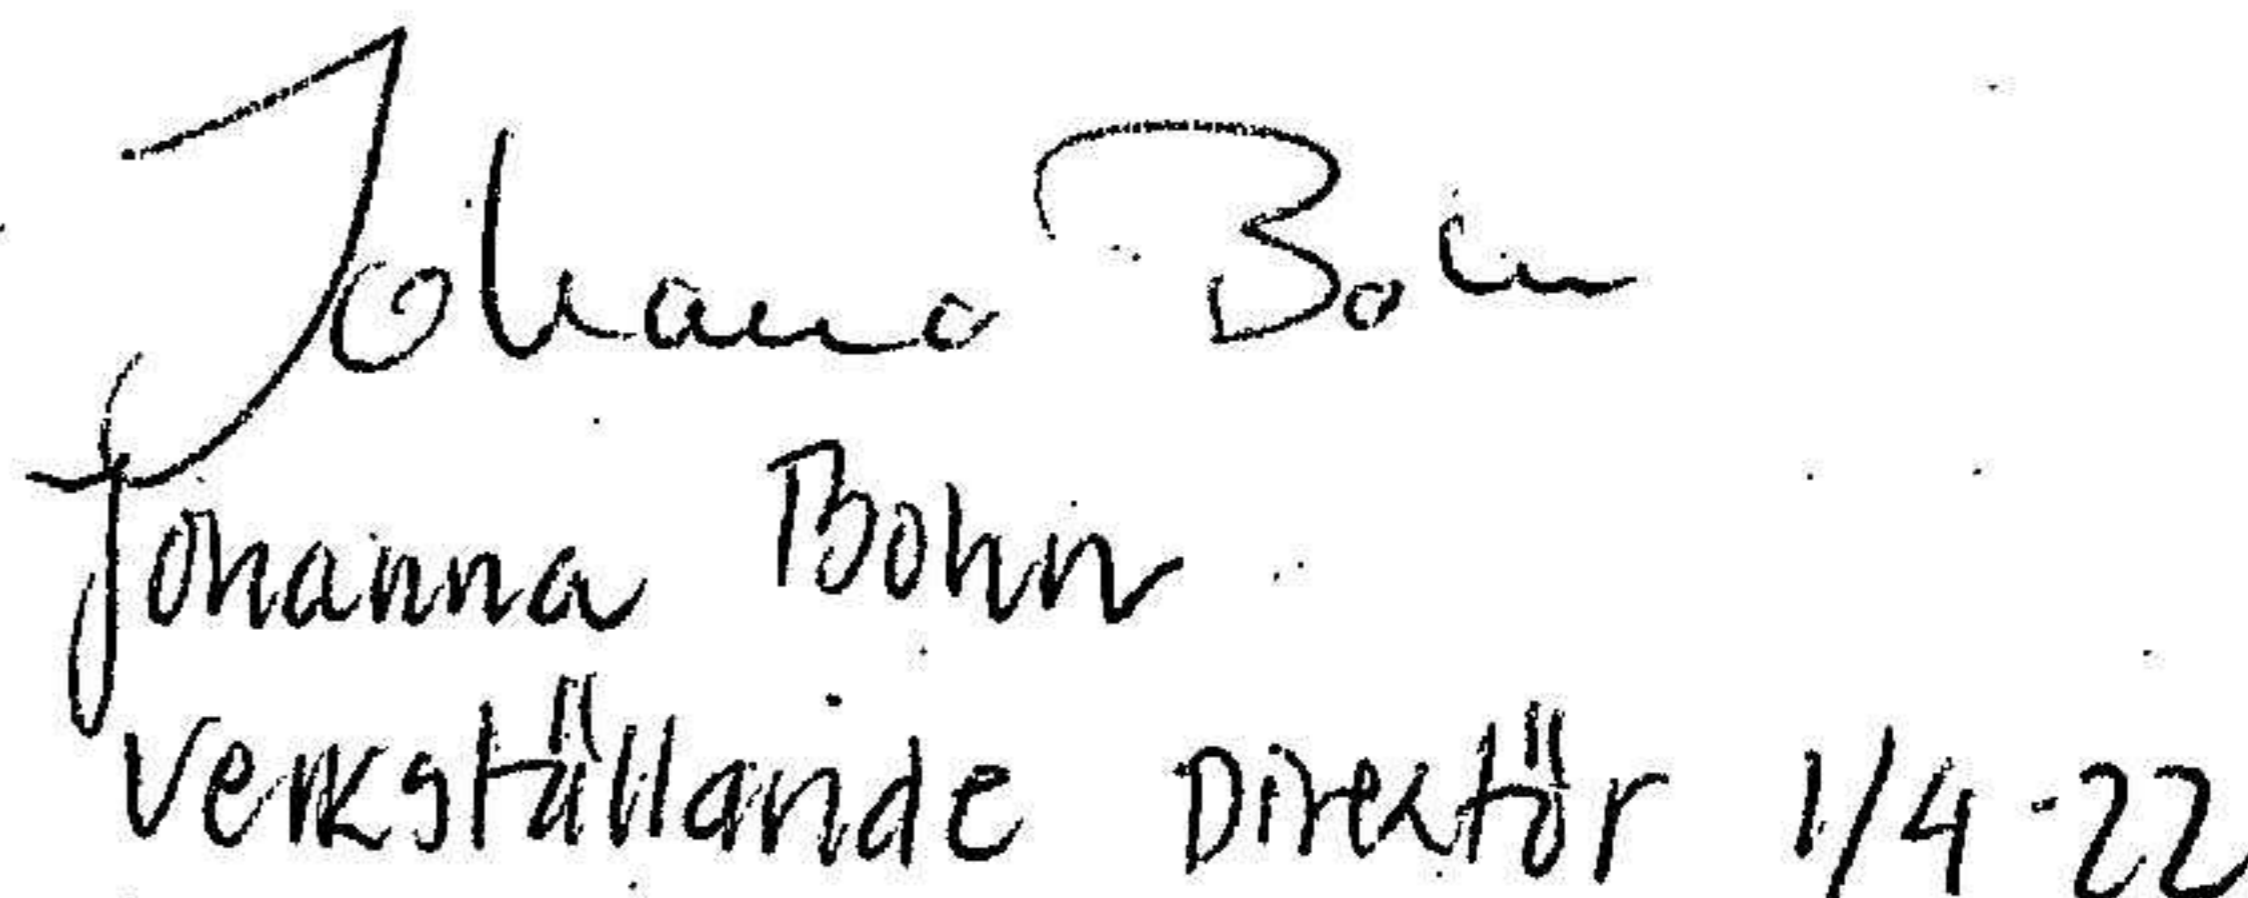 Johanna Bohn
Johanna Bohn
Verkställande Direktör 1/4-22